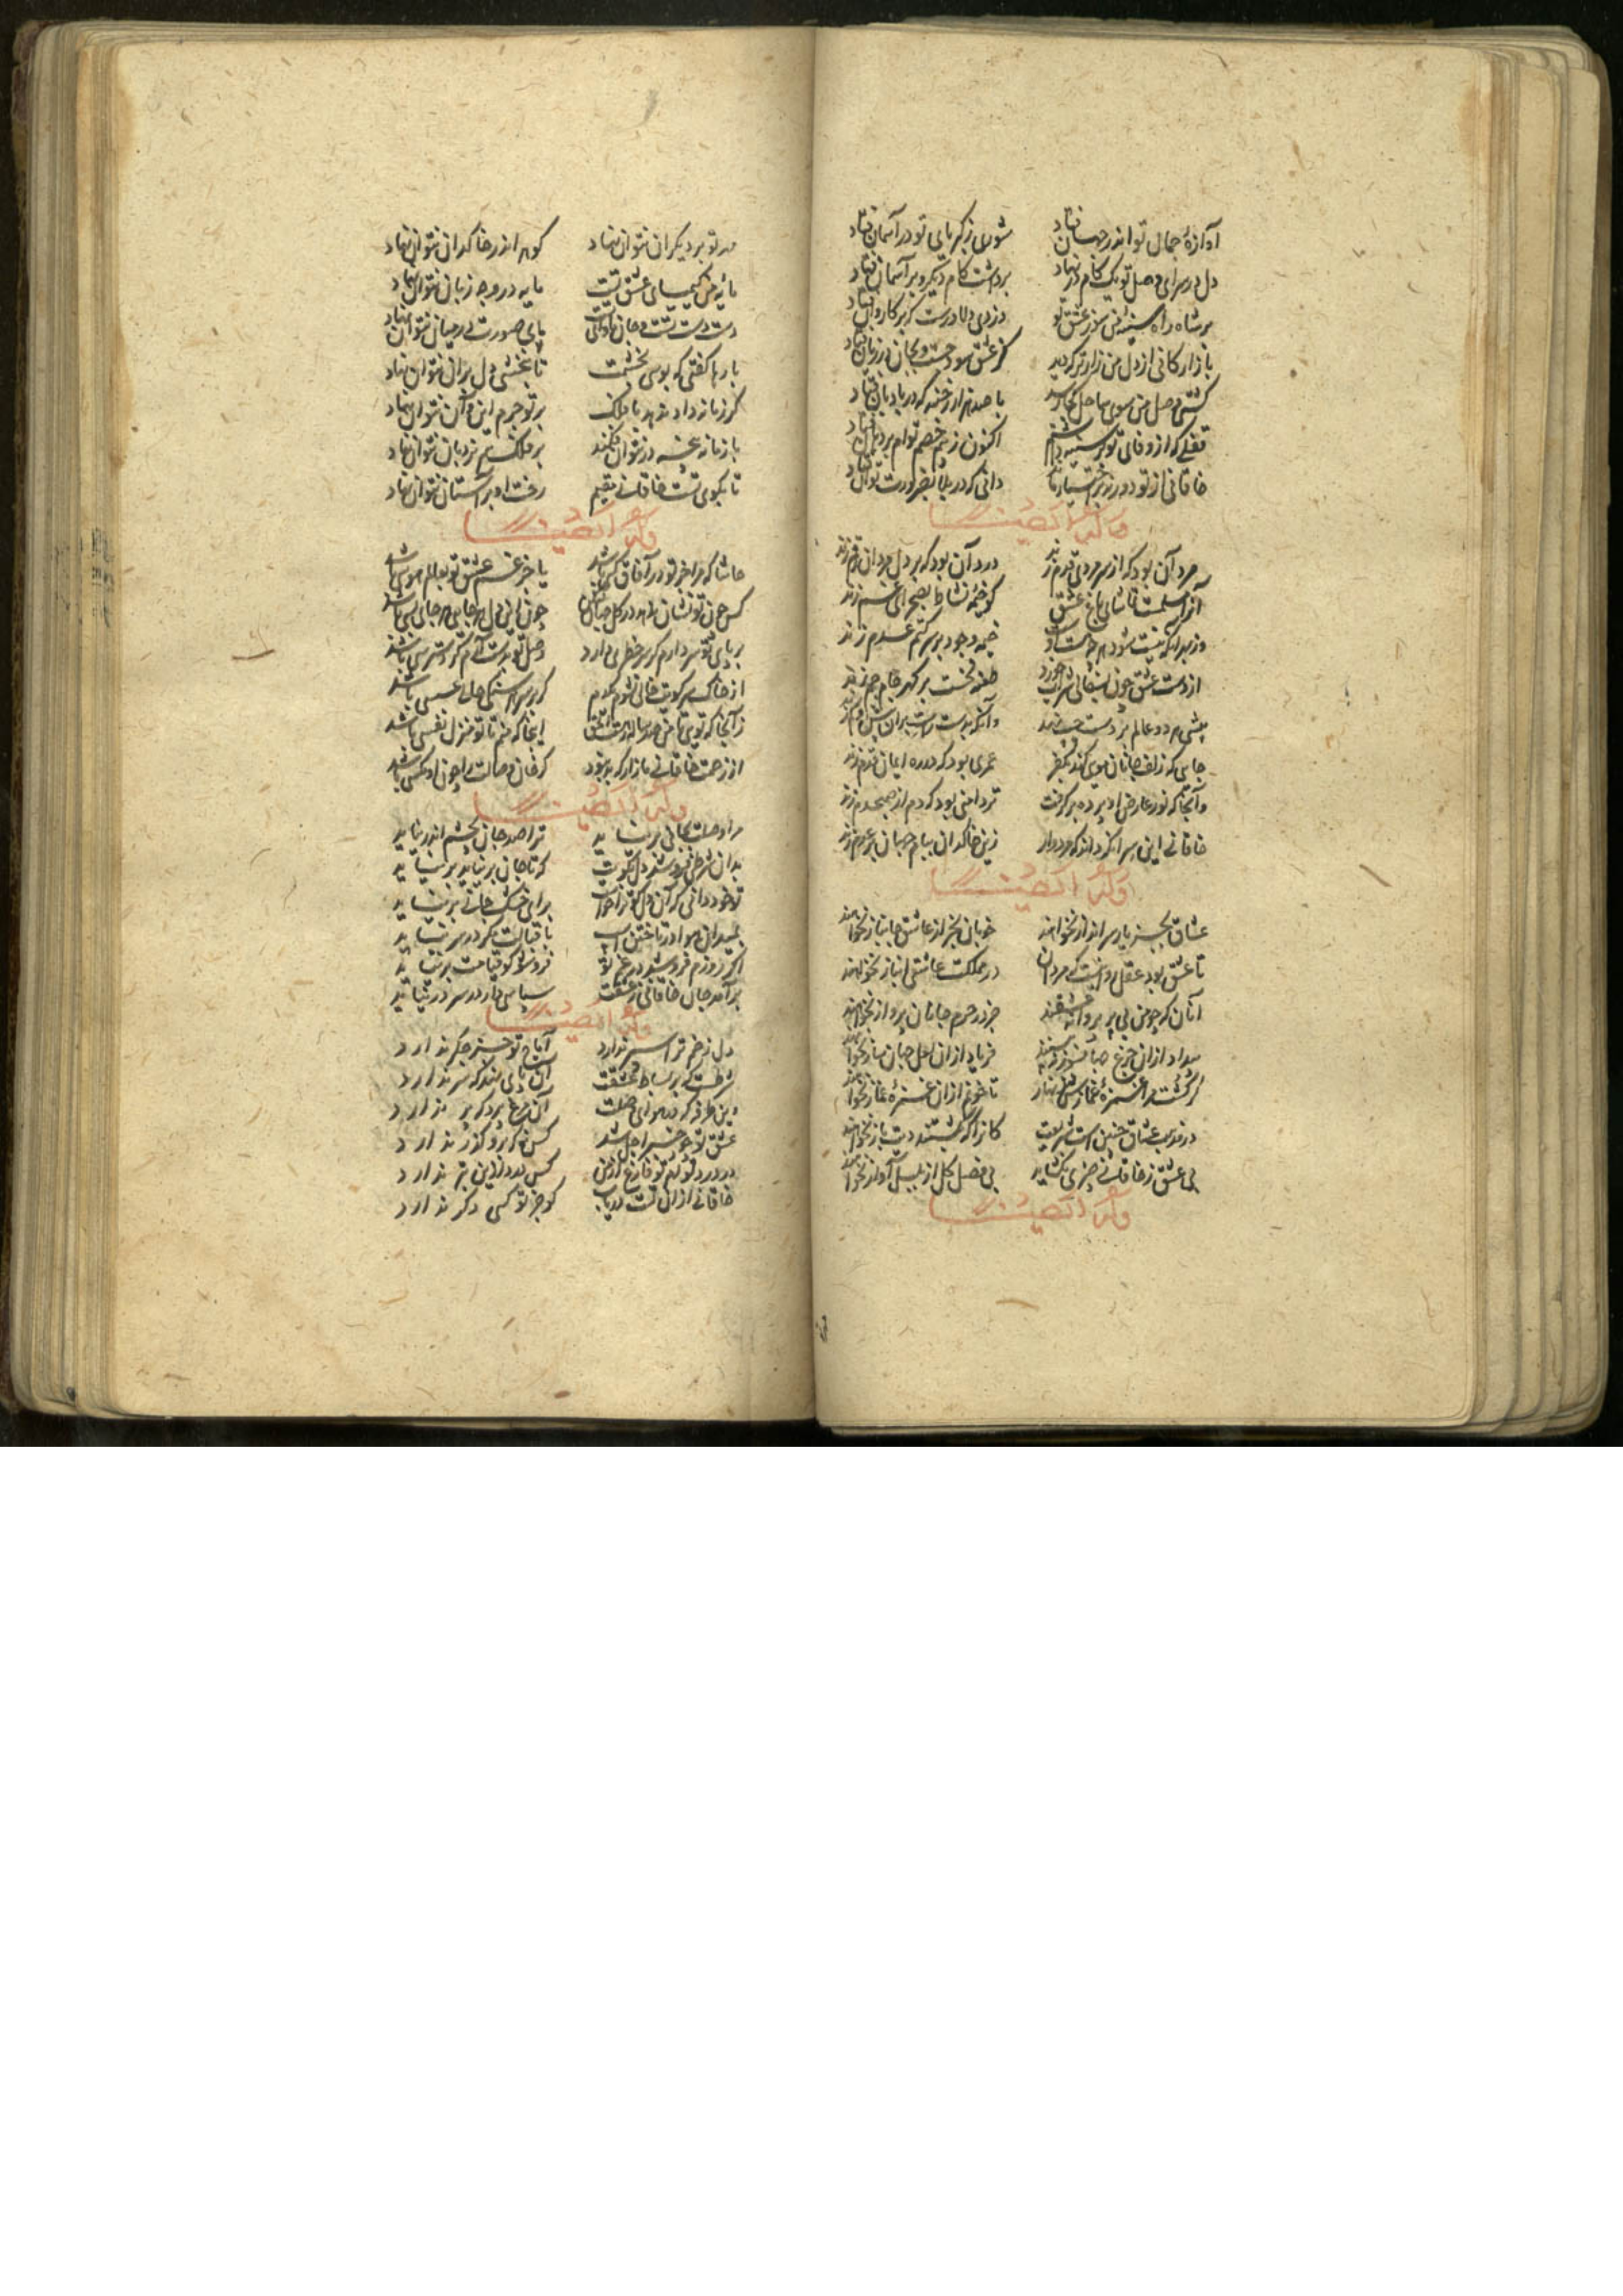 آوازهٔ جمال تو اندر جهان فتاد شوری ز کبریای تو در آسمان فتاد
دل در سرای وصل تو یک گام در نهاد برداشت گام دیگر و بر آسمان نهاد
بر شاه راه سینهٔ من سوز عشق تو دزدی دلاورست که بر کاروان فتاد
بازارکانی از دل من زارتر که دید کز عشق سود جست و بجان در زیان فتاد
کشتی وصل من سوی ساحل کجا رسد با صد هزار رخنه که در بادبان فتاد
قفلی که از وفای تو بر سینه داشتم اکنون ز بیم خصم توام بر دهان فتاد
خاقانی از تو دور نه بر اختیار ماند دانی که در بلا بضرورت توان فتاد
وله ایضا
مرد آن بود که از سر دردی قدم زند درد آن بود که بر دل مردان رقم زند
آنرا مسلمست تماشا بباغ عشق کو خیمهٔ نشاط بصحرای غم زند
وز بهر آنکه نیست شود هر چه هست او خیمه وجود بر سر کتم عدم زند
از دست عشق چون بسفالی شراب خورد طعنه نخست بر گهر جام جم زند
پیشی هر دو عالم بر دست چپ نهد وآنگه بدست راست بر آن بیش و کم زند
جایی که زلف جانان دعوی کند بکفر گمره بود که در ره ایمان قدم زند
وآنجا که نور عارض او پرده برگرفت تردامنی بود که دم از صبحدم زند
خاقانی این بساز که داند که مردوار زین خاکدان ببام جهان بر علم زند
وله ایضا
عشاق بجز یار سرانداز نخواهند خوبان بجز از عاشق جانباز نخواهند
تا عشق بود عقل روا نیست که مردان در مملکت عاشقی انباز نخواهند
آنان که چو من بی پر و پروانه عشقند جز در حرم جانان پرواز نخواهند
بیداد از آن جزع جهانسوز نبینند فریاد از آن لعل جهان ساز نخواهند
گر کشته شد از غمزهٔ غماز تو زنهار تا خونم از آن غمزهٔ غماز نخواهند
در مذهب عشاق چنین است شریعت کانرا که بکشتند دیت باز نخواهند
بی عشق ز خاقانی چیزی نگشاید بی فصل گل از بلبل آواز نخواهند
وله ایضا
مهر تو بر دیگران نتوان نهاد گوهر اندر خاکدان نتوان نهاد
مایهٔ من کیمیای عشق تست مایه در وجه زیان نتوان نهاد
دست دست تست و جان ماوای تست پای صورت در میان نتوان نهاد
بارها گفتی که بوسی بخشمت تا نبخشی دل بر آن نتوان نهاد
گر زمانه داد ندهد یا فلک بر تو جرم این و آن نتوان نهاد
با زمانه غصه در نتوان فکند بر فلک هم نردبان نتوان نهاد
تا بکوی تست خاقانی مقیم رخت او بر آستان نتوان نهاد
وله ایضا
حاشا که مرا جز تو در آفاق کسی باشد یا جز غم عشق تو بعالم هوسی باشد
کس چون تو نشان ندهد در کل جهان چون این دل هر جایی هر جای بسی باشد
بر پای تو سر دارم گر سر خطری دارد وصل تو بدست آرم گر دسترسی باشد
از خاک سر کویت خالی نشوم یکدم گر بر سر هر سنگی حالی عسسی باشد
ز آنجا که تویی تا من صد ساله ره است الحق اینجا که منم تا تو منزل نفسی باشد
از زحمت خاقانی مازار که بد نبود گر خوان وصالت را چون او مگسی باشد
وله ایضا
مرا وصلت بجانی بر نیاید ترا صد جان بچشم اندر نیاید
بدان شرطی فروشد دل بکویت که تا جان بر نیاید بر نیاید
تو خود دانی گر آن دل کو ترا خواست برای خشک جانی بر نیاید
بمیدان هوا در تاختن اسب باقبالت مگر در سر نیاید
اگر روزم فروشد در غم تو فروشو گو قیامت بر نیاید
برآمد جان خاقانی ز عشقت سپاسی دار در سر در نیاید
وله ایضا
دل زخم ترا سپر ندارد آماج تو جز جگر ندارد
شرطست که بر بساط عشقت آن پای نهد که سر ندارد
وین طرفه که در هوای وصلت آن مرغ پرد که پر ندارد
عشق تو چو خنجر اجل شد کس نه که برو گذر ندارد
در درد تو ام تو فارغ از من کس درد ازین بتر ندارد
خاقانی از آن تست دریاب کو جز تو کسی دگر ندارد